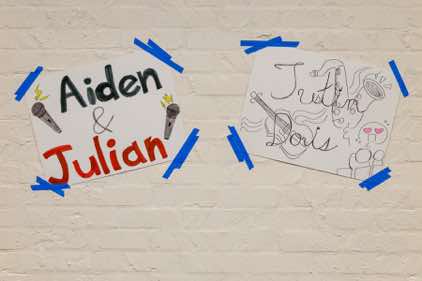 Aiden
&
Julian
Justin
Doris